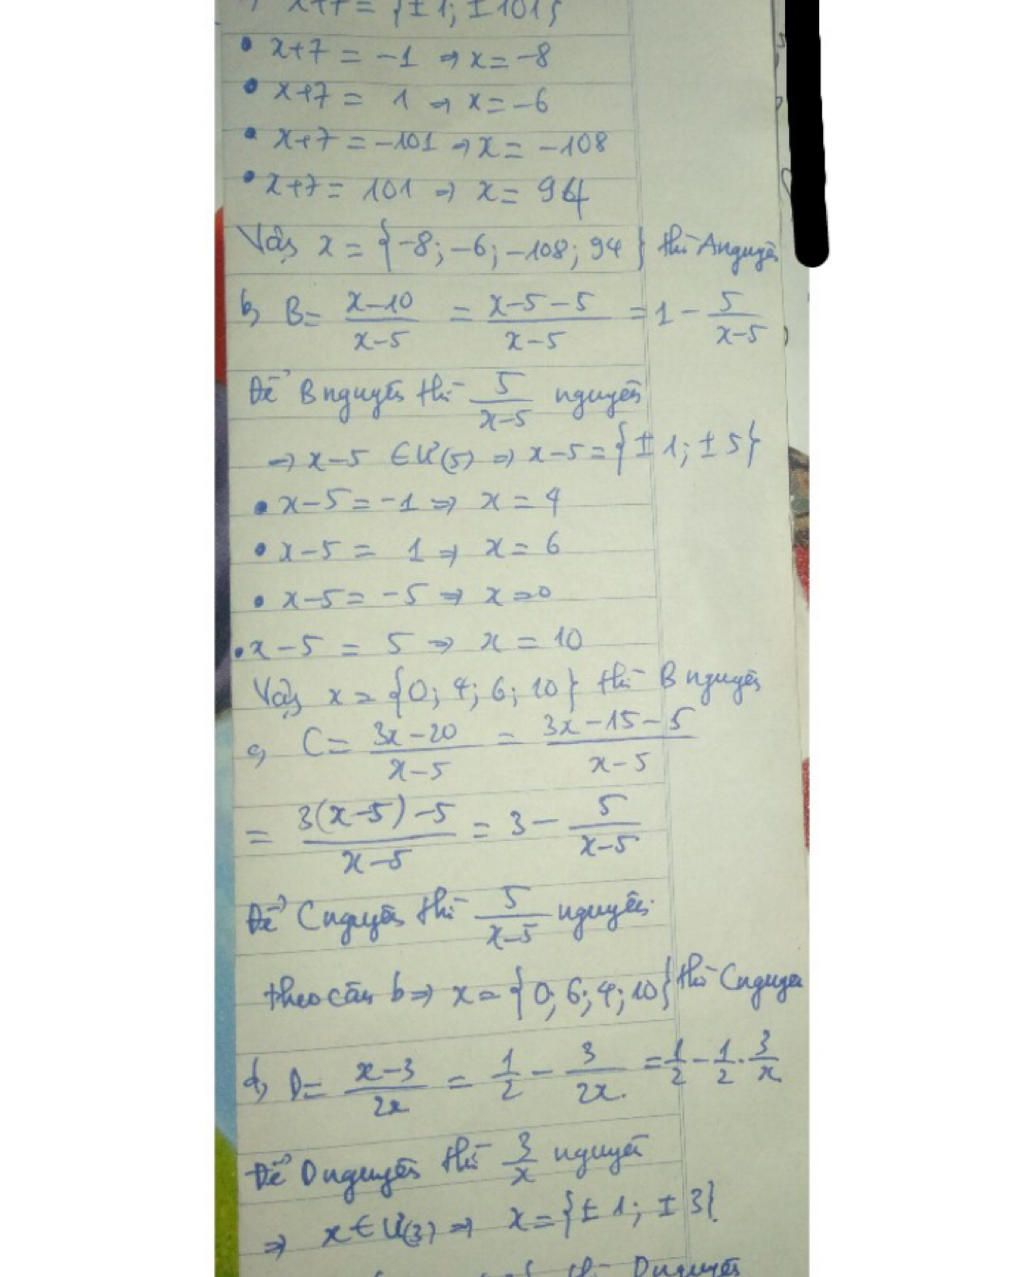 x+7 = {±1; ±101}
• x+7 = -1 ⇒ x = -8
• x+7 = 1 ⇒ x = -6
• x+7 = -101 ⇒ x = -108
• x+7 = 101 ⇒ x = 94
Vậy x = {-8; -6; -108; 94} thì A nguyên
b, B = (x-10)/(x-5) = (x-5-5)/(x-5) = 1 - 5/(x-5)
Để B nguyên thì 5/(x-5) nguyên
⇒ x-5 ∈ Ư(5) ⇒ x-5 = {±1; ±5}
• x-5 = -1 ⇒ x = 4
• x-5 = 1 ⇒ x = 6
• x-5 = -5 ⇒ x = 0
• x-5 = 5 ⇒ x = 10
Vậy x = {0; 4; 6; 10} thì B nguyên
c, C = (3x-20)/(x-5) = (3x-15-5)/(x-5)
= (3(x-5)-5)/(x-5) = 3 - 5/(x-5)
Để C nguyên thì 5/(x-5) nguyên
theo câu b ⇒ x = {0; 6; 4; 10} thì C nguyên
d, D = (x-3)/(2x) = 1/2 - 3/(2x) = 1/2 - 1/2 . 3/x
Để D nguyên thì 3/x nguyên
⇒ x ∈ Ư(3) ⇒ x = {±1; ±3}
thì D nguyên